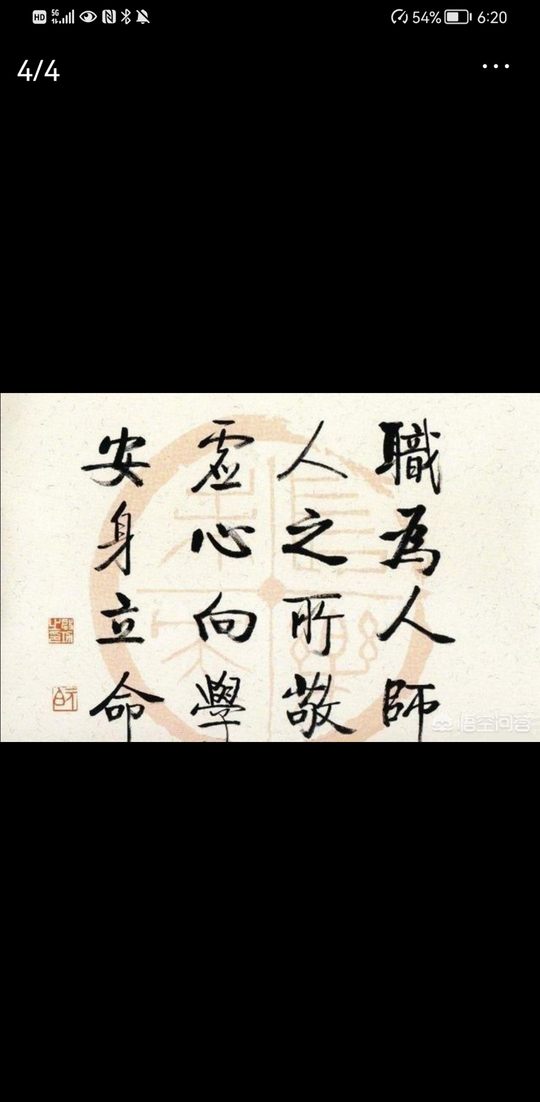 HD 5G 54% 6:20
4/4
職為人師
人之所敬
虛心向學
安身立命
悟空问答